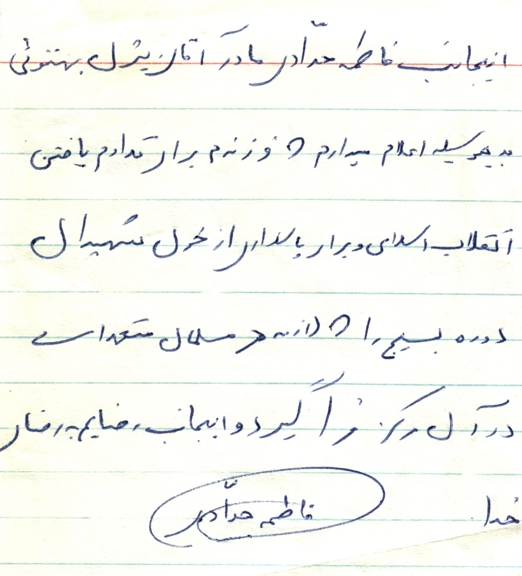 اینجانب فاطمه حدّادی مادر آقای یژل بهنتوئی
بدینوسیله اعلام میدارم که فرزندم برای تداوم یافتن
انقلاب اسلامی و برای پاسداری از خون شهیدان
دوره بسیج را که لازمه هر مسلمان متعهد است
در آن مرکز فرا گیرد و اینجانب رضایم به رضای
خدا.
فاطمه حدّادی